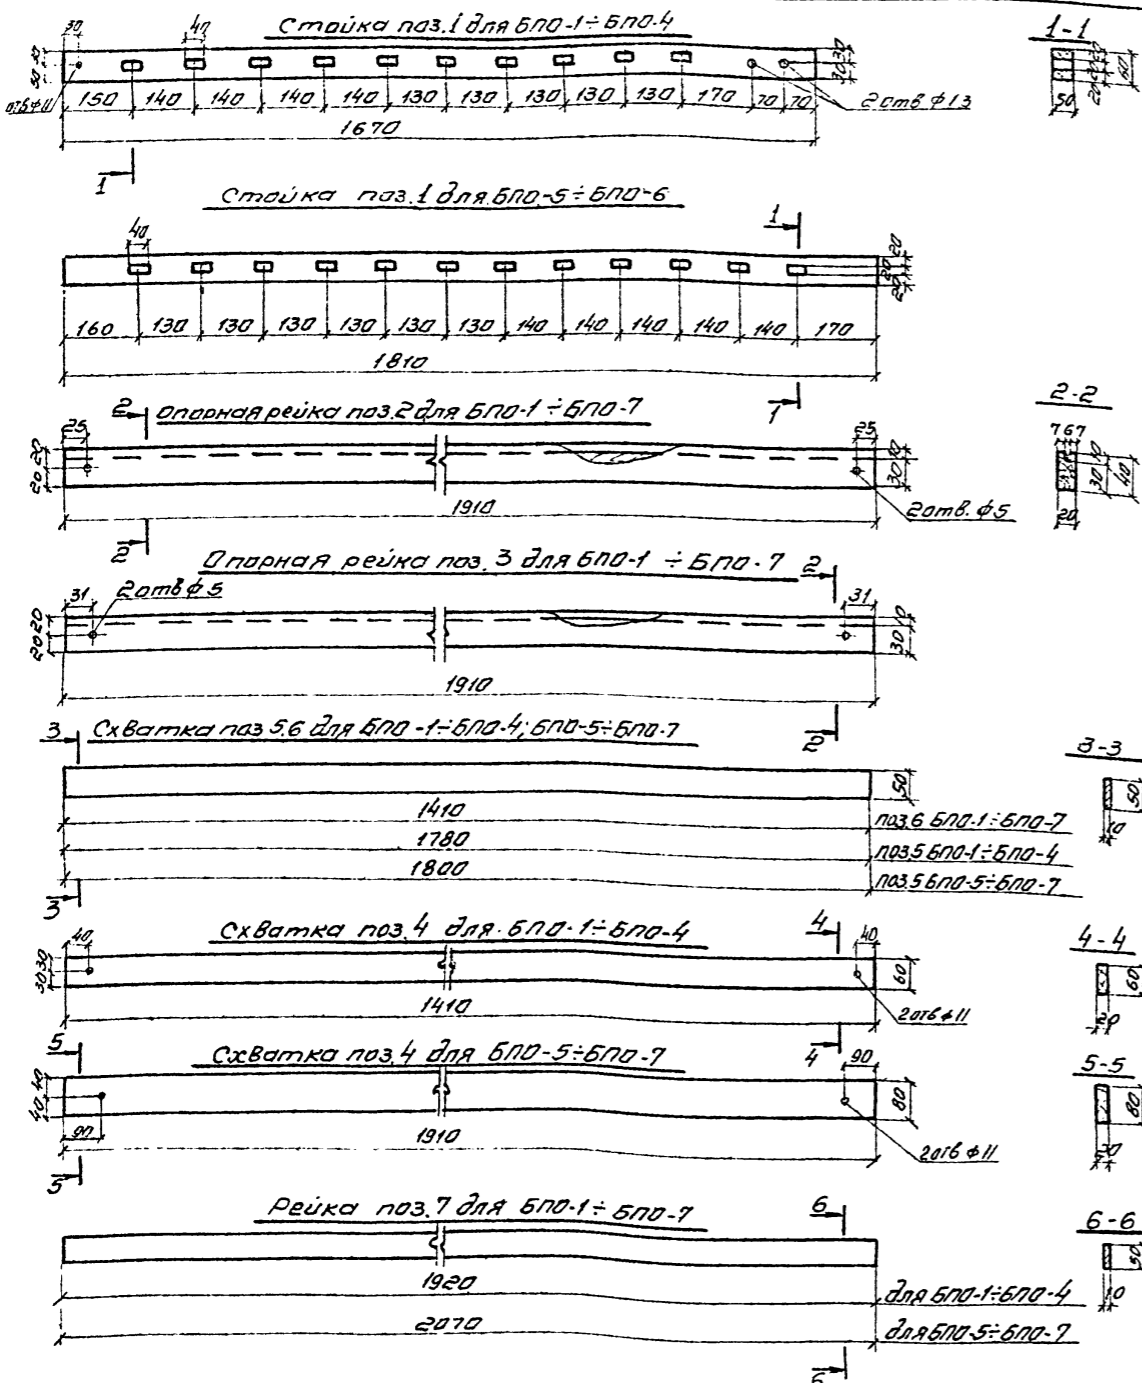 Стойка поз.1 для БПО-1÷БПО-4
30 40
отв ф11
30 30
150 140 140 140 140 130 130 130 130 130 170 70 70
2 отв ф13
1670
1 1
1-1
60
20
50
Стойка поз.1 для БПО-5÷БПО-6
40
20 20 20
160 130 130 130 130 130 130 140 140 140 140 140 170
1810
1 1
Опорная рейка поз.2 для БПО-1÷БПО-7
2 2
25 25
20 20
10 30
1910
2 отв. ф5
2-2
7 6 7
10 30 40
20
Опорная рейка поз. 3 для БПО-1 ÷ БПО-7
2 2
31 31
2 отв ф5
20 20
10 30
1910
Схватка поз 5.6 для БПО-1÷БПО-4; БПО-5÷БПО-7
3 3
50
1410 поз.6 БПО-1÷БПО-7
1780 поз.5 БПО-1÷БПО-4
1800 поз.5 БПО-5÷БПО-7
3-3
50
10
Схватка поз.4 для БПО-1÷БПО-4
4 4
40 40
30 30
60
1410
2 отв ф11
4-4
60
20
Схватка поз.4 для БПО-5÷БПО-7
5 5
90 90
40 40
80
1910
2 отв ф11
5-5
80
Рейка поз.7 для БПО-1÷БПО-7
6 6
1920 для БПО-1÷БПО-4
2070 для БПО-5÷БПО-7
6-6
50
10